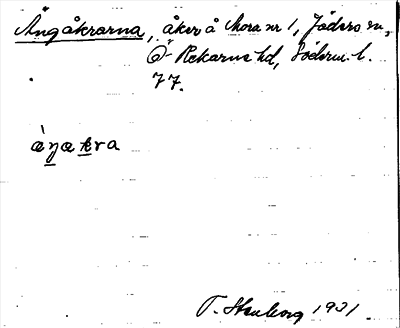 Ängåkrarna, åker å Mora nr 1, Jäders sn,
Ö Rekarne hd, Söderm. l.
77.
ä̀ŋa kra
T. Stenborg 1931